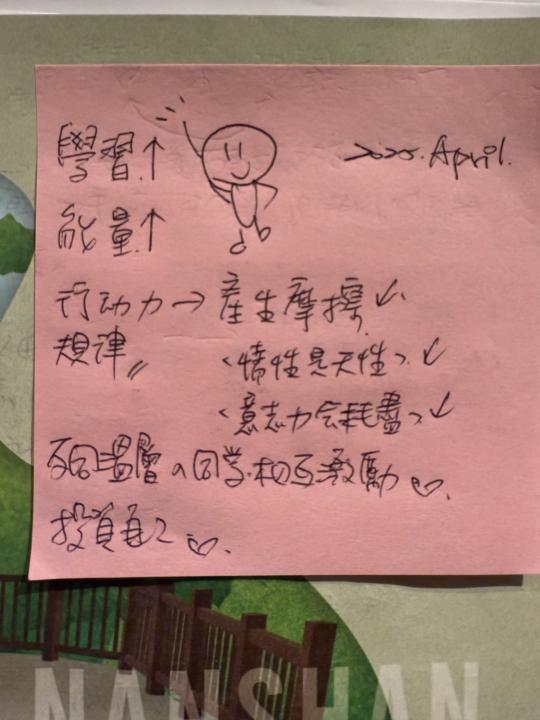 學習↑
2025. April.
能量↑
行动力→產生摩擦↙.
規律〃
<惰性是天性>.↙
<意志力会耗盡>.↙
同溫層的同学相互激勵♡.
投資自己♡.
NANSHAN